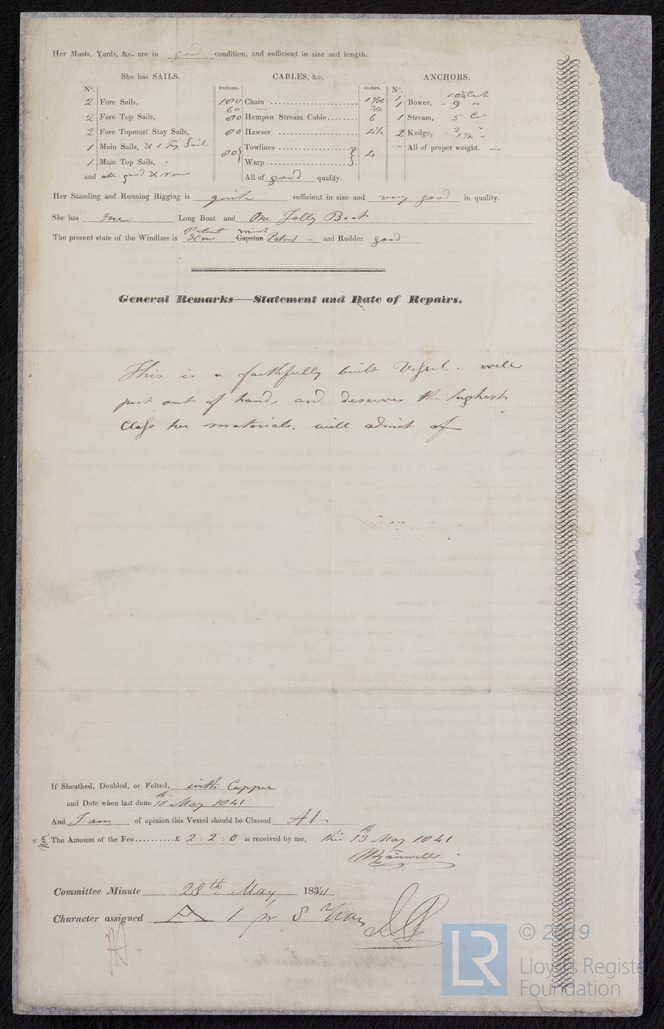 Her Masts, Yards, &c. are in good condition, and sufficient in size and length.
She has SAILS. CABLES, &c. ANCHORS.
N°. Fathoms. Inches. N°.
2 Fore Sails, 100 Chain 1 Bower,
2 Fore Top Sails, 80 Hempen Stream Cable 6 1 Stream, 5
2 Fore Topmast Stay Sails, 80 Hawser 2 Kedge,
1 Main Sails, & 1 Top Sail 80 Towlines 4 All of proper weight.
1 Main Top Sails, Warp
and all good & new All of good quality.
Her Standing and Running Rigging is quite sufficient in size and very good in quality.
She has one Long Boat and One Jolly Boat
The present state of the Windlass is Patent & new Capstan Patent and Rudder good
General Remarks—Statement and Date of Repairs.
This is a faithfully built Vessel. well
put out of hand, and deserves the highest
Class her materials. will admit of
If Sheathed, Doubled, or Felted, with Copper
and Date when last done 10th May 1841
And I am of opinion this Vessel should be Classed A1
The Amount of the Fee £ 2 : 2 : 0 is received by me, this 13th May 1841
Committee Minute 28th May 1841
Character assigned A 1 for 8 Years
LR
© 2019
Lloyd's Register
Foundation